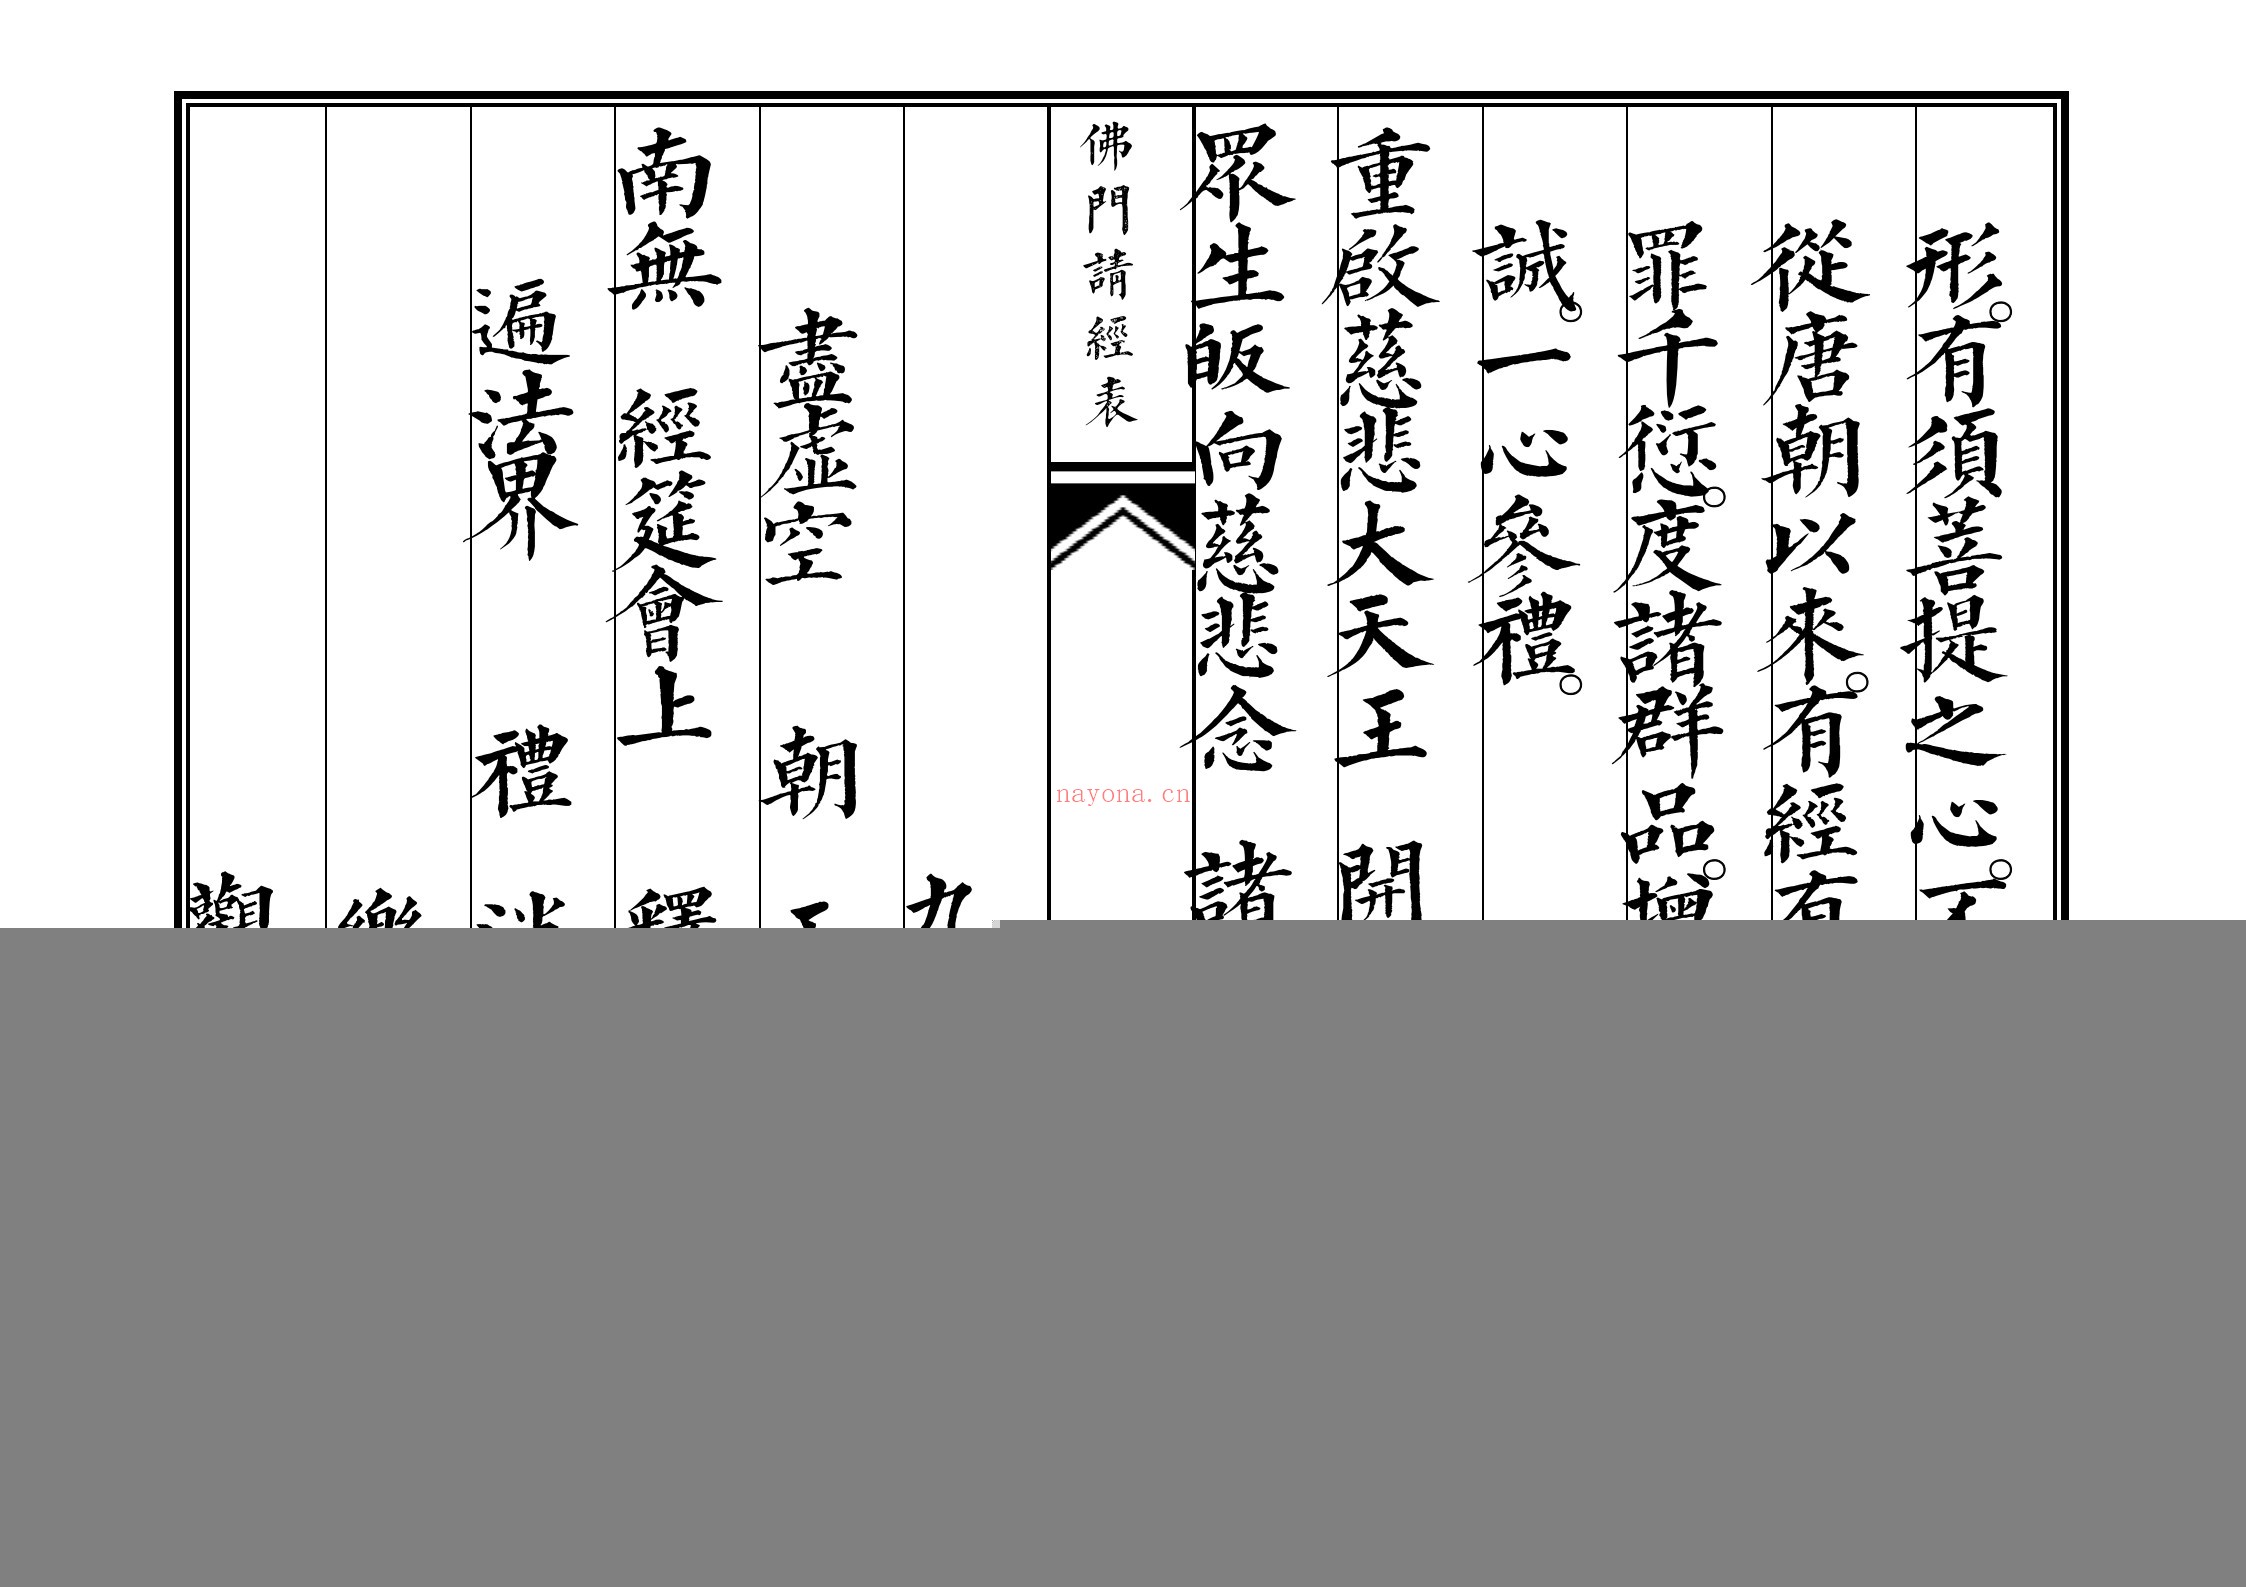 形。有須菩提之心。
從唐朝以來。有經有
罪千愆。度諸群品。增
誠。一心參禮。
重啟慈悲大天王 開
眾生皈向慈悲念 諸
佛門請經表
nayona.cn
九
盡虛空 朝
南無 經筵會上 釋
遍法界 禮
樂
觀